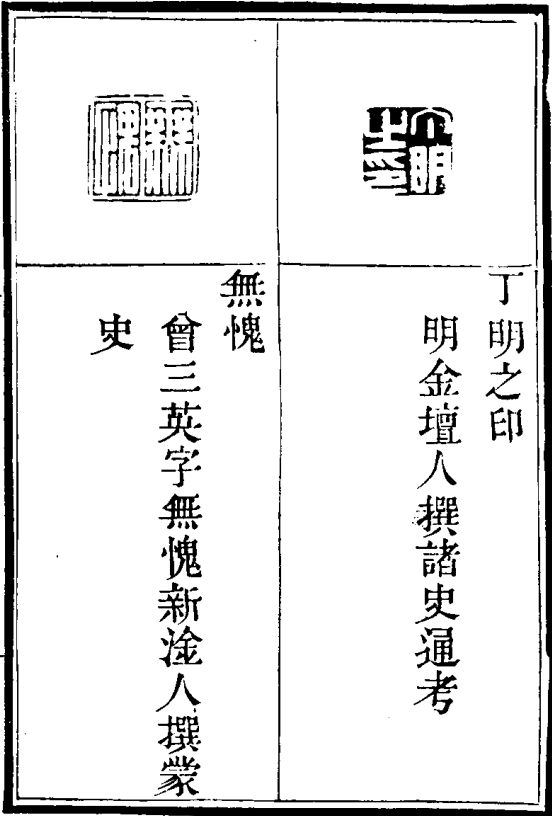 丁明之印
明金壇人撰諸史通考
無愧
曾三英字無愧新淦人撰蒙
史